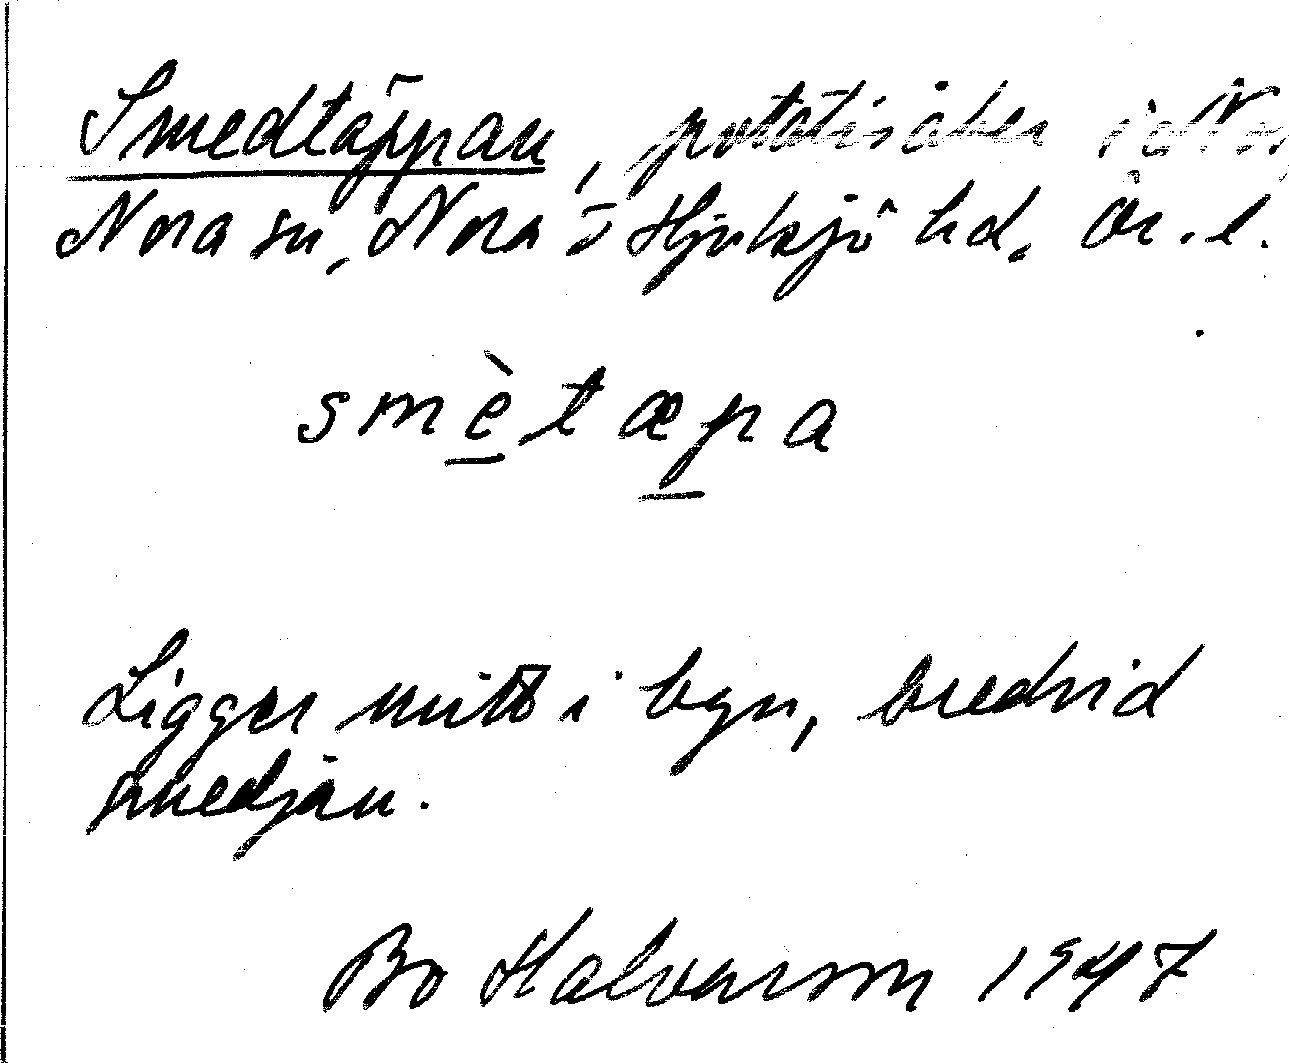 Smedtäppan, potatisåker i
Nora sn, Nora o Hjulsjö hd. Ör. l.
smètæpa
Ligger mitt i byn, bredvid
smedjan.
Bo Halvarson 1947